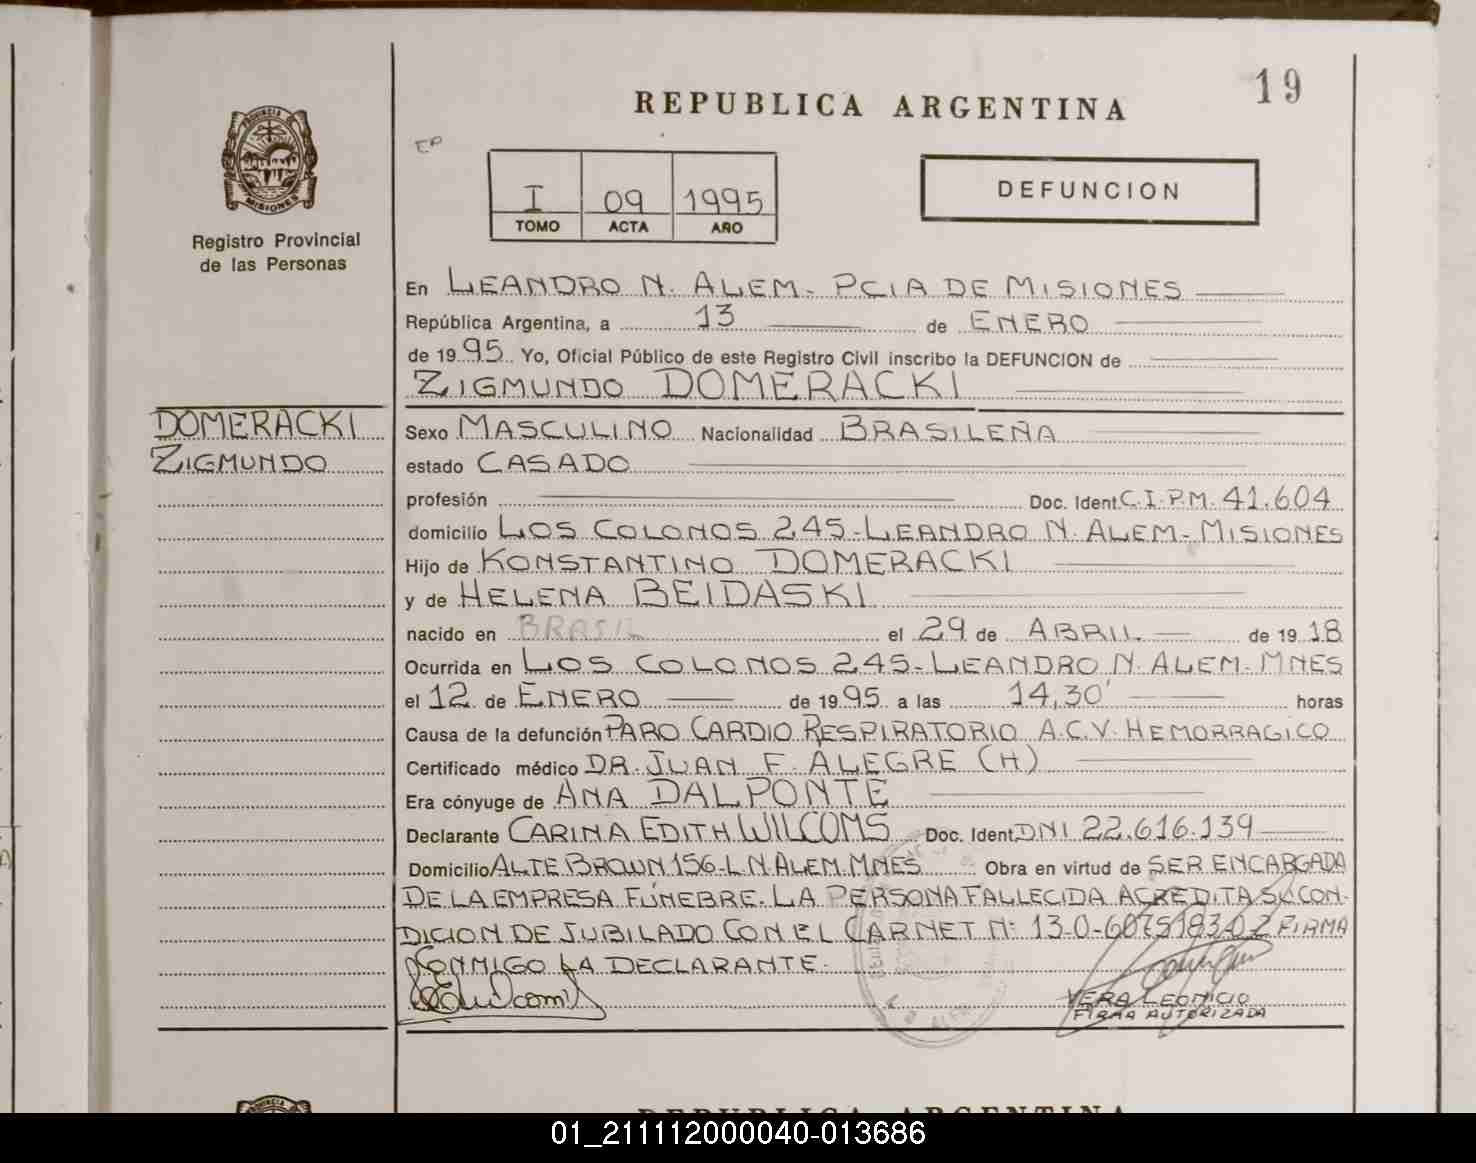 19
REPUBLICA ARGENTINA
EP
I 09 1995
TOMO ACTA AÑO
DEFUNCION
PROVINCIA DE
MISIONES
Registro Provincial
de las Personas
En LEANDRO N. ALEM - PCIA DE MISIONES
República Argentina, a 13 de ENERO
de 1995 Yo, Oficial Público de este Registro Civil inscribo la DEFUNCION de
ZIGMUNDO DOMERACKI
DOMERACKI
ZIGMUNDO
Sexo MASCULINO Nacionalidad BRASILEÑA
estado CASADO
profesión Doc. Ident. C.I.P.M. 41.604
domicilio LOS COLONOS 245 - LEANDRO N. ALEM - MISIONES
Hijo de KONSTANTINO DOMERACKI
y de HELENA BEIDASKI
nacido en BRASIL el 29 de ABRIL de 1918
Ocurrida en LOS COLONOS 245 - LEANDRO N. ALEM - MNES
el 12 de ENERO de 1995 a las 14,30' horas
Causa de la defunción PARO CARDIO RESPIRATORIO A.C.V. HEMORRAGICO
Certificado médico DR. JUAN F. ALEGRE (H)
Era cónyuge de ANA DALPONTE
Declarante CARINA EDITH WILCOMS Doc. Ident. DNI 22.616.139
Domicilio ALTE BROWN 156 - L.N. ALEM. MNES Obra en virtud de SER ENCARGADA
DE LA EMPRESA FÚNEBRE. LA PERSONA FALLECIDA ACREDITA SU CON-
DICION DE JUBILADO CON EL CARNET Nº 13-0-6075183-02 FIRMA
CONMIGO LA DECLARANTE.
VERA LEONICIO
FIRMA AUTORIZADA
REPUBLICA ARGENTINA
01_211112000040-013686